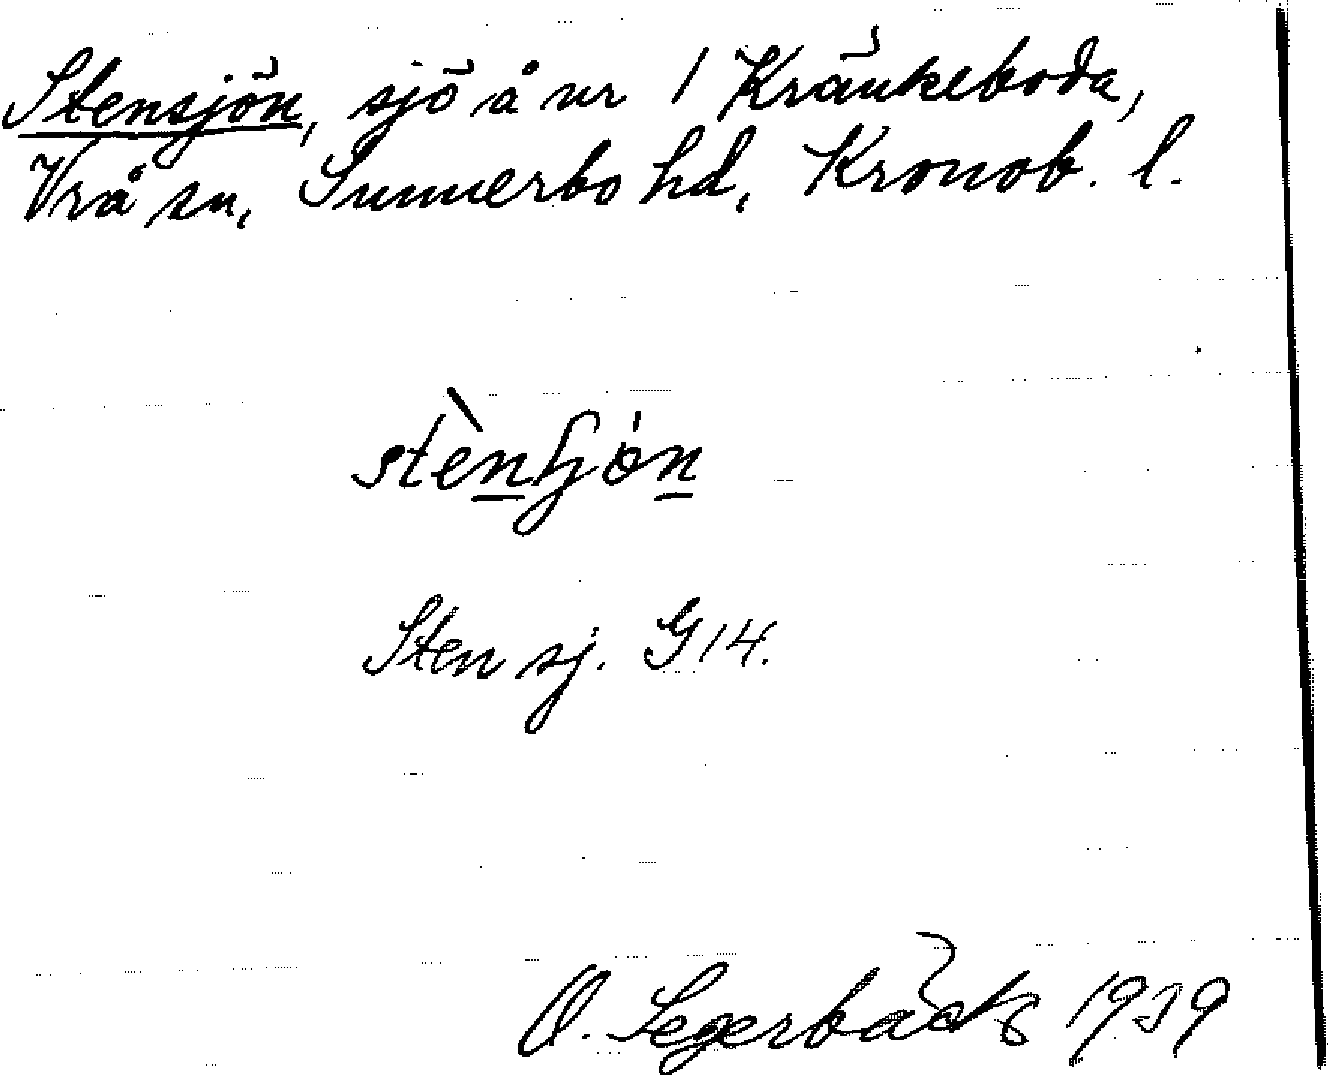 Stensjön, sjö å nr 1 Kränkeboda,
Vrå sn, Sunnerbo hd, Kronob. l.
stènʃjön
Stensj. G14.
O. Segerbäck 1939